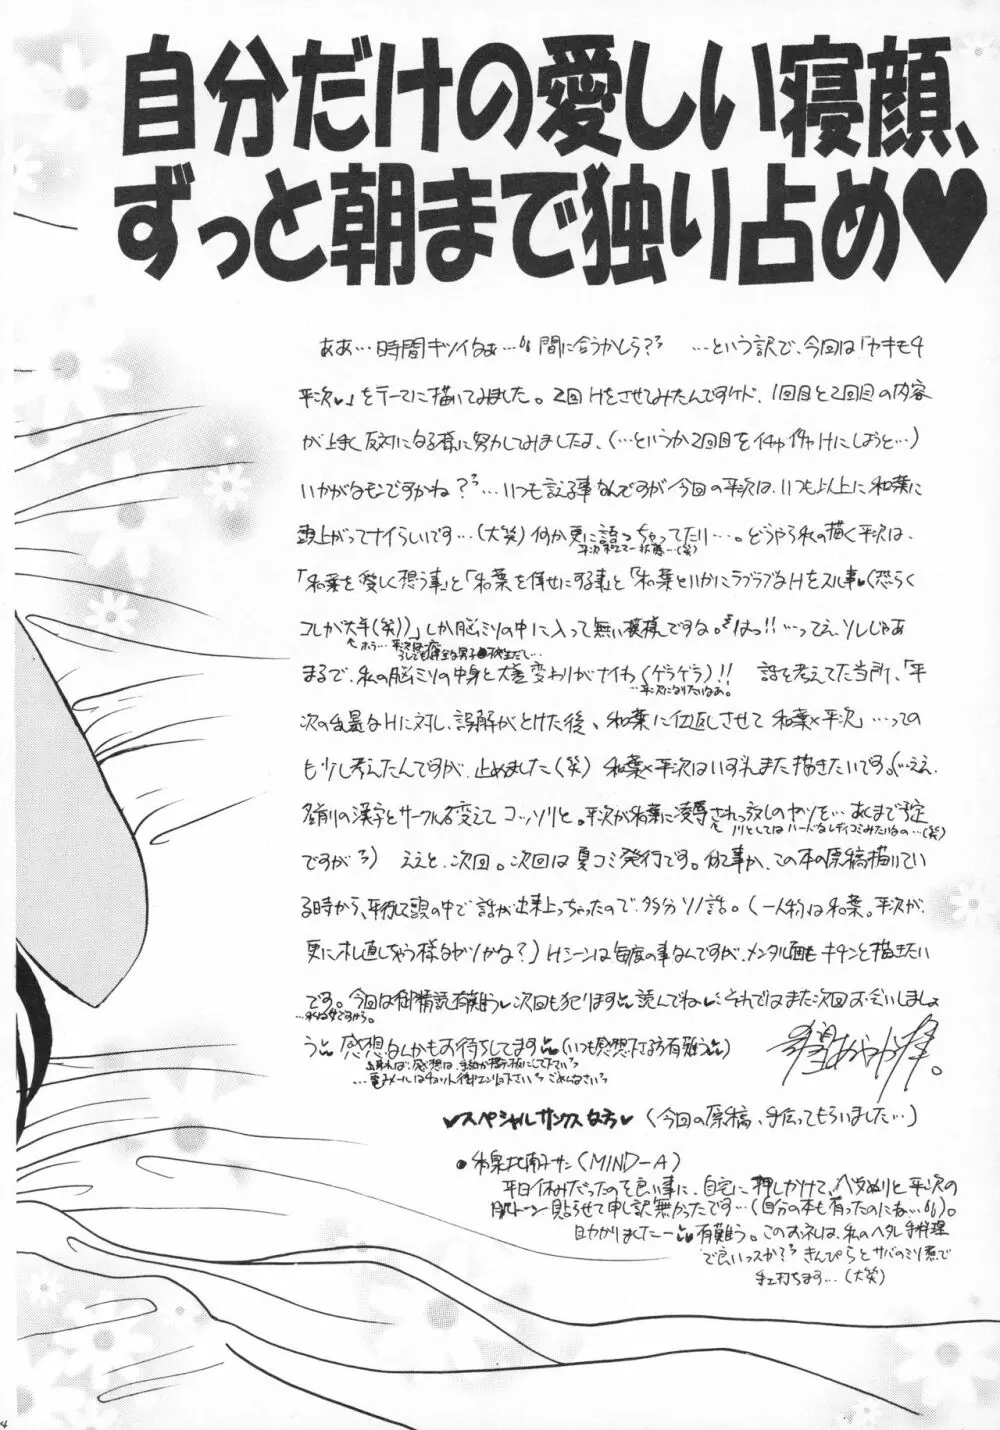 自分だけの愛しい寝顔、
ずっと朝まで独り占め♥
ああ…時間キツイなぁ…間に合うかしら? …という訳で、今回は「ヤキモチ
平次♥」をテーマに描いてみました。2回Hをさせてみたんですケド、1回目と2回目の内容
が上手く反対になる様に努力してみましたよ、(…というか2回目をイチャイチャHにしようと…)
いかがなモンですかね?…いつも言える事なんですが今回の平次は、いつも以上に和葉に
頭上がってナイらしいです…(大笑)何か更に語っちゃってたり…。どうやら私の描く平次は、
「和葉を愛しく想う事」と「和葉を倖せにする事」と「和葉といかにラブラブなHをスル事♥(恐らく
コレが大半(笑))」しか脳ミソの中に入って無い模様ですな。はっ!!…ってえ、ソレじゃあ
まるで、私の脳ミソの中身と大差変わりがナイわ(ゲラゲラ)!! 話を考えてた当所、「平
…平次になりたいなぁ。
次の乱暴なHに対し、誤解がとけた後、和葉に仕返しさせて 和葉×平次」…っての
も少し考えたんですが、止めました(笑) 和葉×平次はいずれまた描きたいです。(…ええ、
名前の漢字とサークル名変えて コッソリと。平次が和葉に凌辱されっ放しのヤツを…あくまで予定
ノリとしてはハードなレディコミみたいなの…(笑)
ですが) ええと、次回。次回は夏コミ発行です。似た事か、この本の原稿描いてい
る時から、平行して頭の中で話が出来上っちゃったので、多分ソノ話。(一人称は和葉。平次が、
更に札直しちゃう様なヤツかな?)Hシーンは毎度の事なんですが、メンタル面もキチンと描きたい
です。今回は御精読有難う♥次回も犯ります 読んでね それではまた次回お会いしましょ
う 感想なんかもお待ちしてます(いつも感想下さる方有難う)
♥スペシャルサンクスな方♥ (今回の原稿、手伝ってもらいました…)
サン(MIND-A)
平日休みだったのを良い事に、自宅に押しかけて、ベタぬりと平次の
肌トーン貼らせて申し訳無かったです…(自分の本も有ったのにね…)。
助かりました― 有難う。このお礼は、私のヘタレ手料理
で良いっスか? きんぴらとサバのミソ煮で
手打ちます…(大笑)